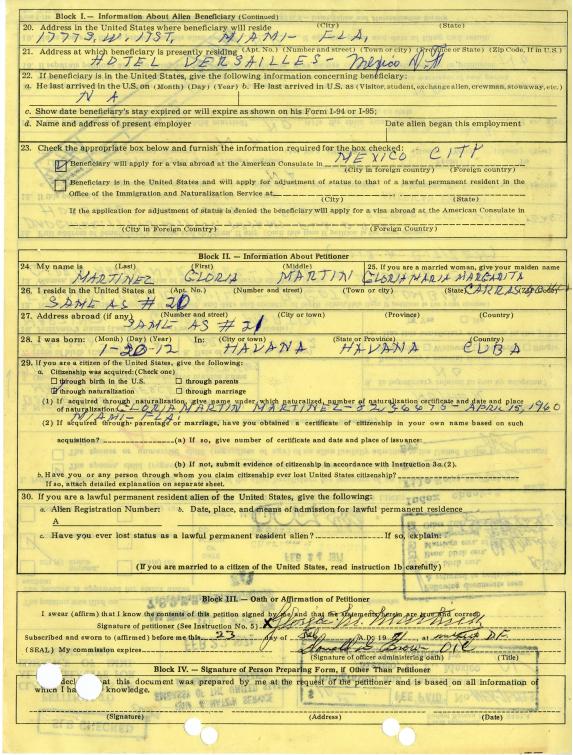 Block I. — Information About Alien Beneficiary (Continued)
20. Address in the United States where beneficiary will reside (City) (State)
1777 S.W. 17 ST. MIAMI - FLA.
21. Address at which beneficiary is presently residing (Apt. No.) (Number and street) (Town or city) (Province or State) (Zip Code, If in U.S.)
HOTEL VERSAILLES - Mexico
22. If beneficiary is in the United States, give the following information concerning beneficiary:
a. He last arrived in the U.S. on (Month) (Day) (Year) b. He last arrived in U.S. as (Visitor, student, exchange alien, crewman, stowaway, etc.)
N A
c. Show date beneficiary's stay expired or will expire as shown on his Form I-94 or I-95;
d. Name and address of present employer Date alien began this employment
23. Check the appropriate box below and furnish the information required for the box checked:
Beneficiary will apply for a visa abroad at the American Consulate in MEXICO - CITY
(City in foreign country) (Foreign country)
Beneficiary is in the United States and will apply for adjustment of status to that of a lawful permanent resident in the
Office of the Immigration and Naturalization Service at
(City) (State)
If the application for adjustment of status is denied the beneficiary will apply for a visa abroad at the American Consulate in
(City in Foreign Country) (Foreign Country)
Block II. — Information About Petitioner
24. My name is (Last) (First) (Middle) 25. If you are a married woman, give your maiden name
MARTINEZ GLORIA MARTIN GLORIA MARIA MARGARITA
26. I reside in the United States at (Apt. No.) (Number and street) (Town or city) (State)
SAME AS # 20
27. Address abroad (if any) (Number and street) (City or town) (Province) (Country)
SAME AS # 21
28. I was born: (Month) (Day) (Year) In: (City or town) (State or Province) (Country)
1-20-12 HAVANA HAVANA CUBA
29. If you are a citizen of the United States, give the following:
a. Citizenship was acquired: (Check one)
through birth in the U.S. through parents
through naturalization through marriage
(1) If acquired through naturalization, give name under which naturalized, number of naturalization certificate and date and place
of naturalization GLORIA MARTIN MARTINEZ - - APRIL 15, 1960
MIAMI - FLA.
(2) If acquired through parentage or marriage, have you obtained a certificate of citizenship in your own name based on such
acquisition? (a) If so, give number of certificate and date and place of issuance:
(b) If not, submit evidence of citizenship in accordance with Instruction 3a.(2).
b. Have you or any person through whom you claim citizenship ever lost United States citizenship?
If so, attach detailed explanation on separate sheet.
30. If you are a lawful permanent resident alien of the United States, give the following:
a. Alien Registration Number: b. Date, place, and means of admission for lawful permanent residence
A
c. Have you ever lost status as a lawful permanent resident alien? If so, explain:
(If you are married to a citizen of the United States, read instruction 1b carefully)
Block III. — Oath or Affirmation of Petitioner
I swear (affirm) that I know the contents of this petition signed by me and that the statements herein are true and correct.
Signature of petitioner (See Instruction No. 5). X
Subscribed and sworn to (affirmed) before me this 23 day of Feb A.D. 19 , at D.F.
(SEAL) My commission expires
(Signature of officer administering oath) (Title)
Block IV. — Signature of Person Preparing Form, if Other Than Petitioner
that this document was prepared by me at the request of the petitioner and is based on all information of
which I have knowledge.
(Signature) (Address) (Date)